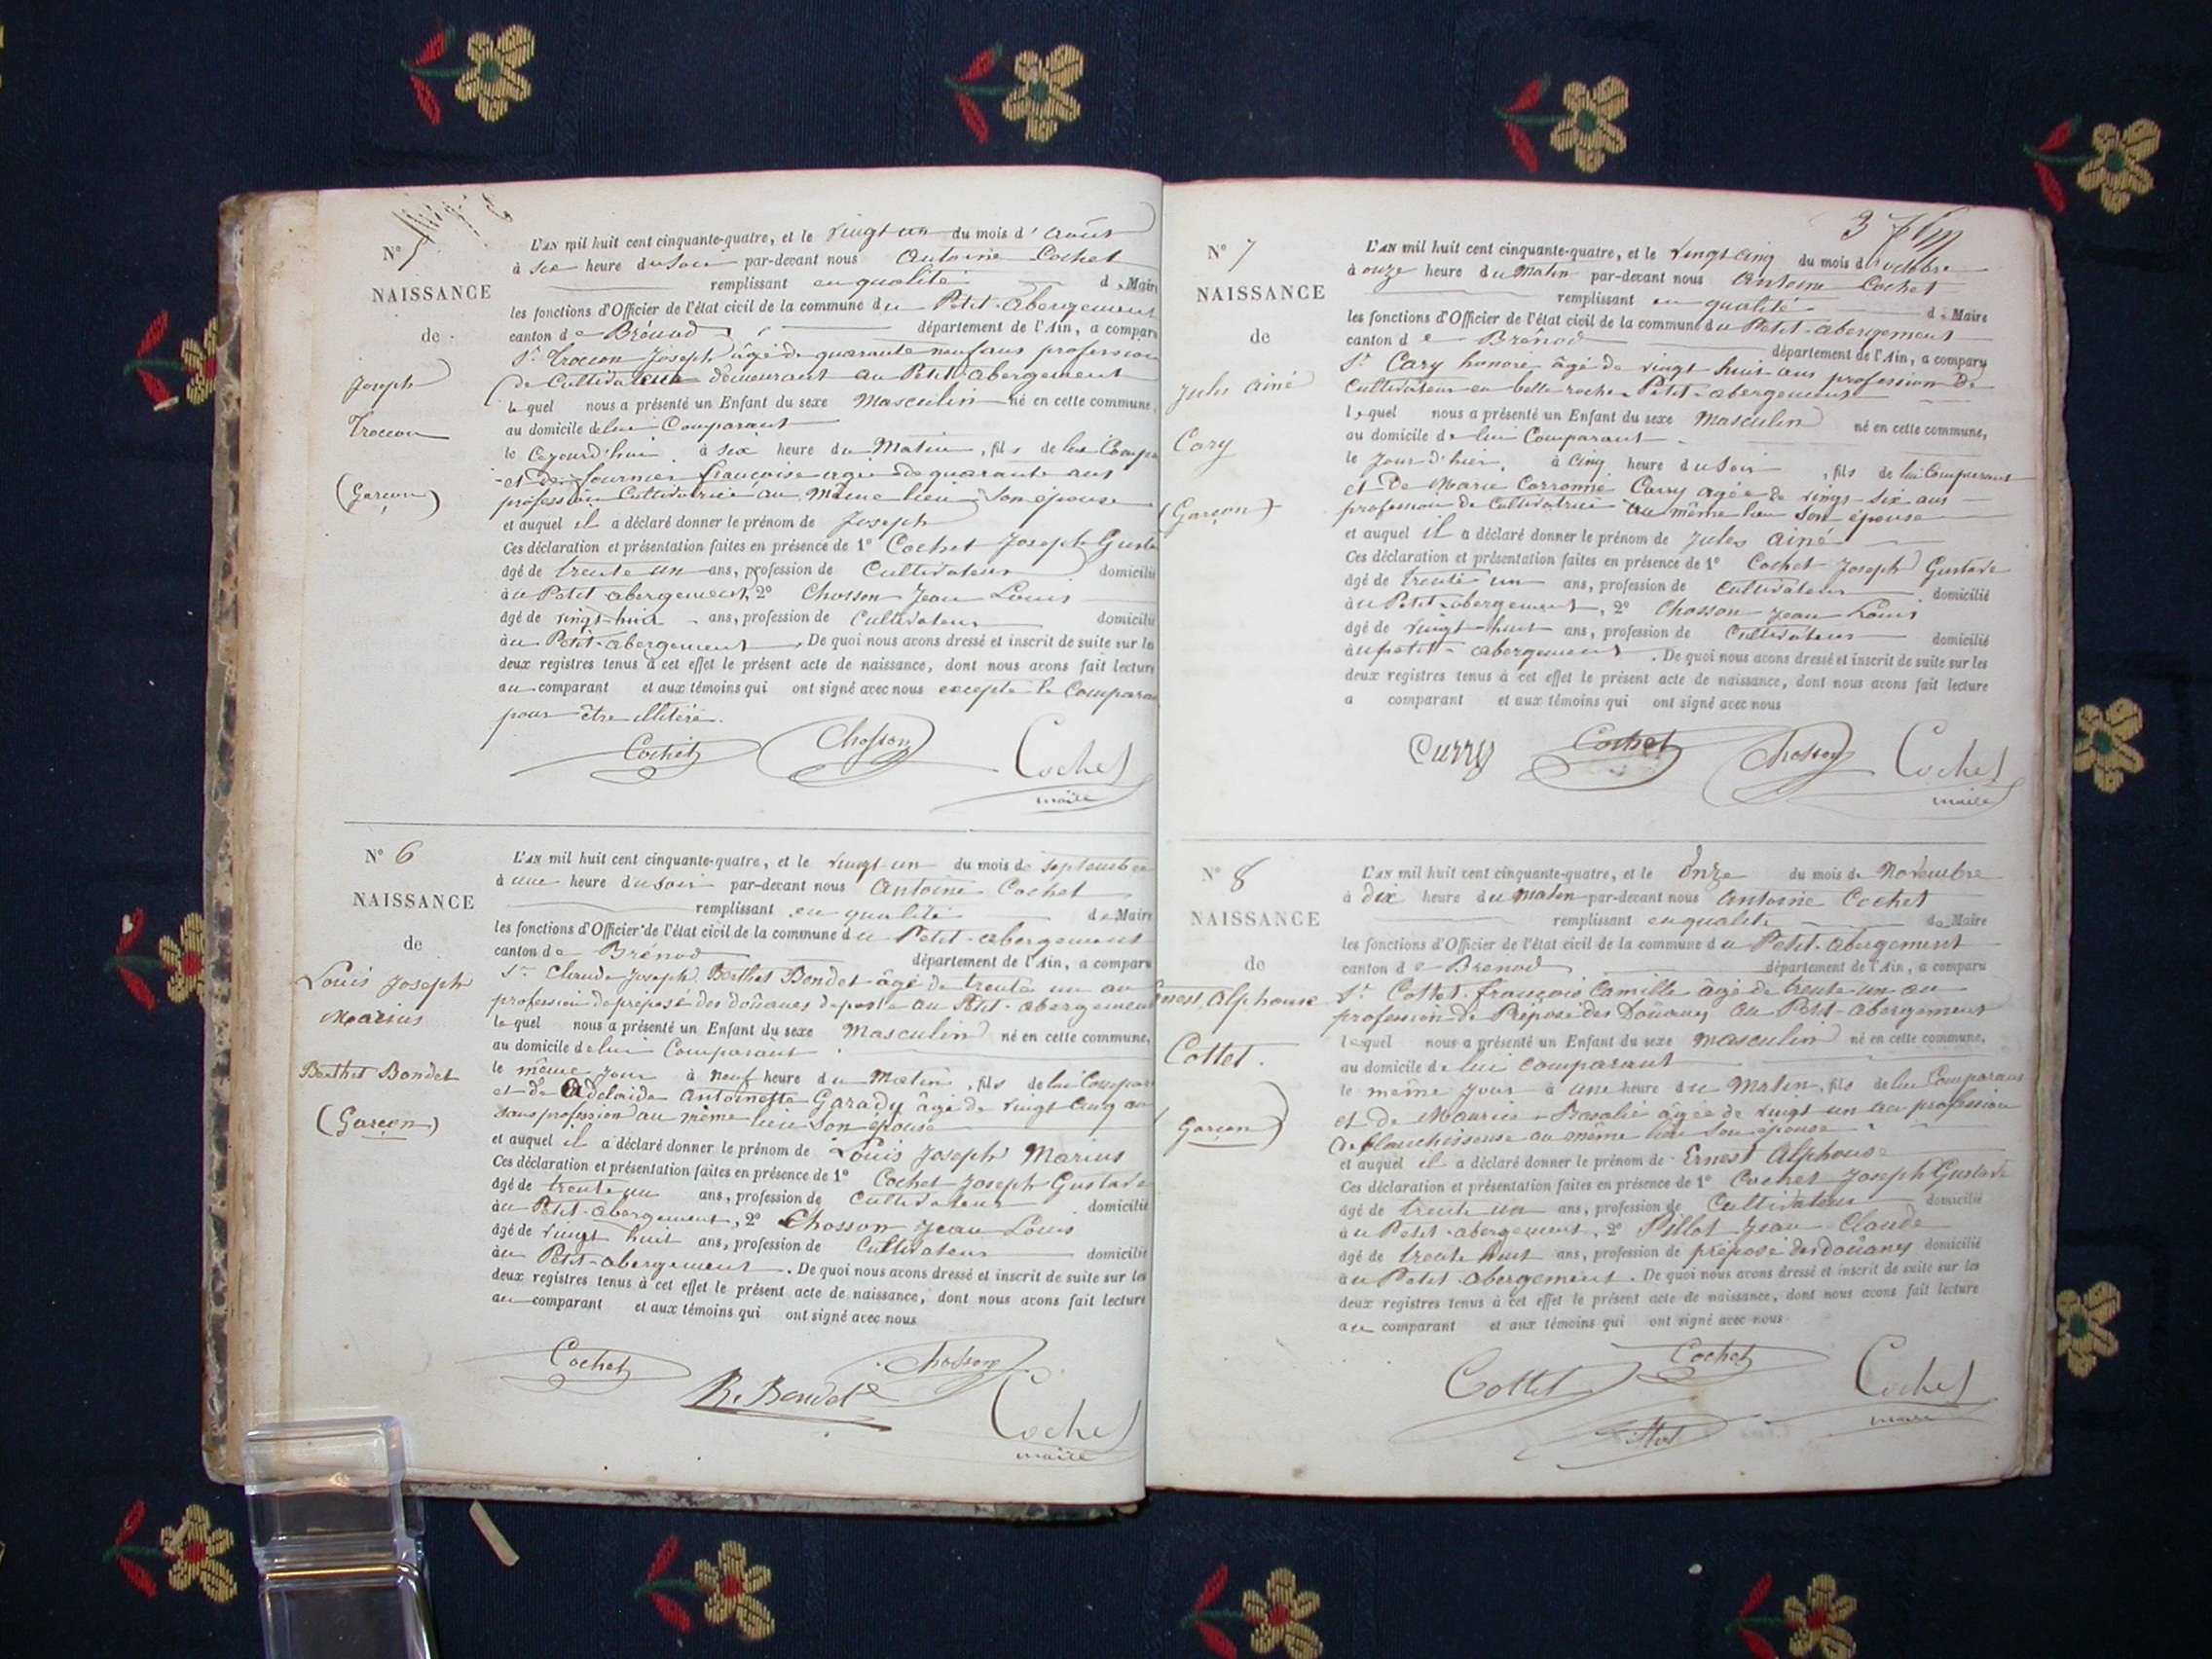 N° 5
NAISSANCE
de
Joseph
Trocon
(Garçon)
L'AN mil huit cent cinquante-quatre, et le vingt un du mois d'août
à six heure du soir par-devant nous Antoine Cochet
remplissant en qualité de Maire
les fonctions d'Officier de l'état civil de la commune du Petit-abergement
canton de Brénod département de l'Ain, a comparu
Sr Trocon Joseph âgé de quarante neuf ans profession
de Cultivateur demeurant au Petit abergement
lequel nous a présenté un Enfant du sexe Masculin né en cette commune,
au domicile de lui Comparant
le cejourd'hui à six heure du Matin, fils de lui Compa
et de fournier françoise agée de quarante ans
profession Cultivatrice au même lieu son épouse
et auquel il a déclaré donner le prénom de Joseph
Ces déclaration et présentation faites en présence de 1° Cochet Joseph Gusta
âgé de trente un ans, profession de Cultivateur domicilié
au Petit abergement, 2° Chosson Jean Louis
âgé de vingt-huit ans, profession de Cultivateur domicilié
au Petit-abergement. De quoi nous avons dressé et inscrit de suite sur les
deux registres tenus à cet effet le présent acte de naissance, dont nous avons fait lecture
au comparant et aux témoins qui ont signé avec nous excepté le Comparan
pour être illitéré.
Cochet Chosson Cochet
maire
N° 6
NAISSANCE
de
Louis Joseph
Marius
Berthet Bondet
(Garçon)
L'AN mil huit cent cinquante-quatre, et le vingt un du mois de septembre
à une heure du soir par-devant nous Antoine Cochet
remplissant en qualité de Maire
les fonctions d'Officier de l'état civil de la commune du Petit-abergement
canton de Brénod département de l'Ain, a comparu
Sr Claude Joseph Berthet Bondet âgé de trente un an
profession de preposé des douanes de poste au Petit-abergement
lequel nous a présenté un Enfant du sexe Masculin né en cette commune,
au domicile de lui Comparant
le même jour à neuf heure du Matin, fils de lui Compar
et de Adelaide Antoinette Garady âgé de vingt cinq an
sans profession au même lieu son épouse
et auquel il a déclaré donner le prénom de Louis Joseph Marius
Ces déclaration et présentation faites en présence de 1° Cochet Joseph Gustave
âgé de trente un ans, profession de Cultivateur domicilié
au Petit-abergement, 2° Chosson Jean Louis
âgé de vingt huit ans, profession de Cultivateur domicilié
au Petit-abergement. De quoi nous avons dressé et inscrit de suite sur les
deux registres tenus à cet effet le présent acte de naissance, dont nous avons fait lecture
au comparant et aux témoins qui ont signé avec nous
Cochet Chosson
B. Bondet
Cochet
maire
3
N° 7
NAISSANCE
de
Jules Ainé
Cary
(Garçon)
L'AN mil huit cent cinquante-quatre, et le vingt cinq du mois d'octobre
à onze heure du Matin par-devant nous Antoine Cochet
remplissant en qualité de Maire
les fonctions d'Officier de l'état civil de la commune du Petit-abergement
canton de Brénod département de l'Ain, a comparu
Sr Cary honoré âgé de vingt huit ans profession De
Cultivateur en belle roche Petit-abergement
lequel nous a présenté un Enfant du sexe Masculin né en cette commune,
au domicile de lui Comparant
le jour d'hier, à cinq heure du soir, fils de lui Comparant
et de Marie Carronne Curry agée de vingt-six ans
profession de Cultivatrice au même lieu son épouse
et auquel il a déclaré donner le prénom de Jules ainé
Ces déclaration et présentation faites en présence de 1° Cochet Joseph Gustave
âgé de trente un ans, profession de Cultivateur domicilié
au Petit-abergement, 2° Chosson Jean Louis
âgé de vingt-huit ans, profession de Cultivateur domicilié
au petit-abergement. De quoi nous avons dressé et inscrit de suite sur les
deux registres tenus à cet effet le présent acte de naissance, dont nous avons fait lecture
a comparant et aux témoins qui ont signé avec nous
Curry Cochet Chosson Cochet
maire
N° 8
NAISSANCE
de
Ernest Alphonse
Cottet.
(Garçon)
L'AN mil huit cent cinquante-quatre, et le Onze du mois de Novembre
à dix heure du matin par-devant nous Antoine Cochet
remplissant en qualité de Maire
les fonctions d'Officier de l'état civil de la commune du Petit-abergement
canton de Brenod département de l'Ain, a comparu
Sr Cottet françois Camille âgé de trente un an
profession de Préposé des Douanes au Petit-abergement
lequel nous a présenté un Enfant du sexe masculin né en cette commune,
au domicile de lui comparant
le même jour à une heure du Matin, fils de lui Comparant
et de Maurice Rosalie âgée de vingt un an profession
de blanchisseuse au même lieu son épouse
et auquel il a déclaré donner le prénom de Ernest Alphonse
Ces déclaration et présentation faites en présence de 1° Cochet Joseph Gustave
âgé de trente un ans, profession de Cultivateur domicilié
au Petit-abergement, 2° Pillot Jean Claude
âgé de trente huit ans, profession de préposé des douanes domicilié
au Petit abergement. De quoi nous avons dressé et inscrit de suite sur les
deux registres tenus à cet effet le présent acte de naissance, dont nous avons fait lecture
au comparant et aux témoins qui ont signé avec nous
Cottet Cochet Cochet
maire